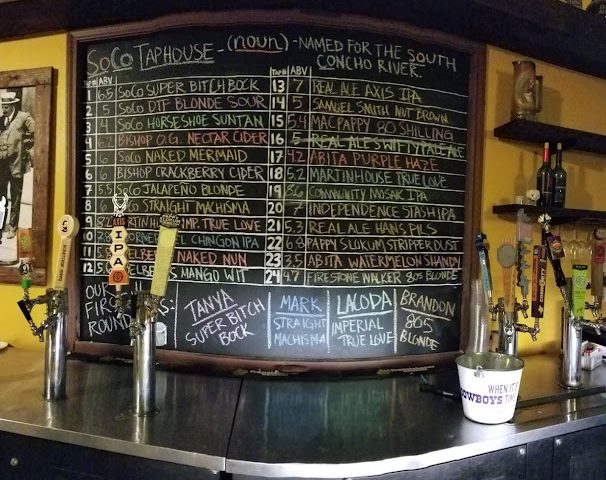 SoCo TAPHOUSE - (noun) - NAMED FOR THE SOUTH
CONCHO RIVER.
TAP# ABV
1 6.5 SoCo SUPER BITCH BOCK
2 5 SoCo DTF BLONDE SOUR
3 SoCo HORSESHOE SUNTAN
4 6.2 BISHOP O.G. NECTAR CIDER
5 6 SoCo NAKED MERMAID
6 6 BISHOP CRACKBERRY CIDER
7 5.5 SoCo JALAPEÑO BLONDE
8 6 STRAIGHT MACHISMA
9 IMP. TRUE LOVE
10 EL CHINGON IPA
11 NAKED NUN
12 MANGO WIT
TAP# ABV
13 7 REAL ALE AXIS IPA
14 5 SAMUEL SMITH NUT BROWN
15 5.4 MAC PAPPY 80 SHILLING
16 5 REAL ALE'S WITTY PALE ALE
17 4.2 ABITA PURPLE HAZE
18 5.2 MARTIN HOUSE TRUE LOVE
19 8.6 COMMUNITY MOSAIC IPA
20 7 INDEPENDENCE STASH IPA
21 5.3 REAL ALE HANS PILS
22 6.8 PAPPY SLOKUM STRIPPER DUST
23 3.5 ABITA WATERMELON SHANDY
24 4.7 FIRESTONE WALKER 805 BLONDE
OUR
FIRS
ROUND
TANYA
SUPER BITCH
BOCK
MARK
STRAIGHT
MACHISMA
LACODA
IMPERIAL
TRUE LOVE
BRANDON
805
BLONDE
AXIS
IPA
WHEN IT'S
COWBOYS
TIME